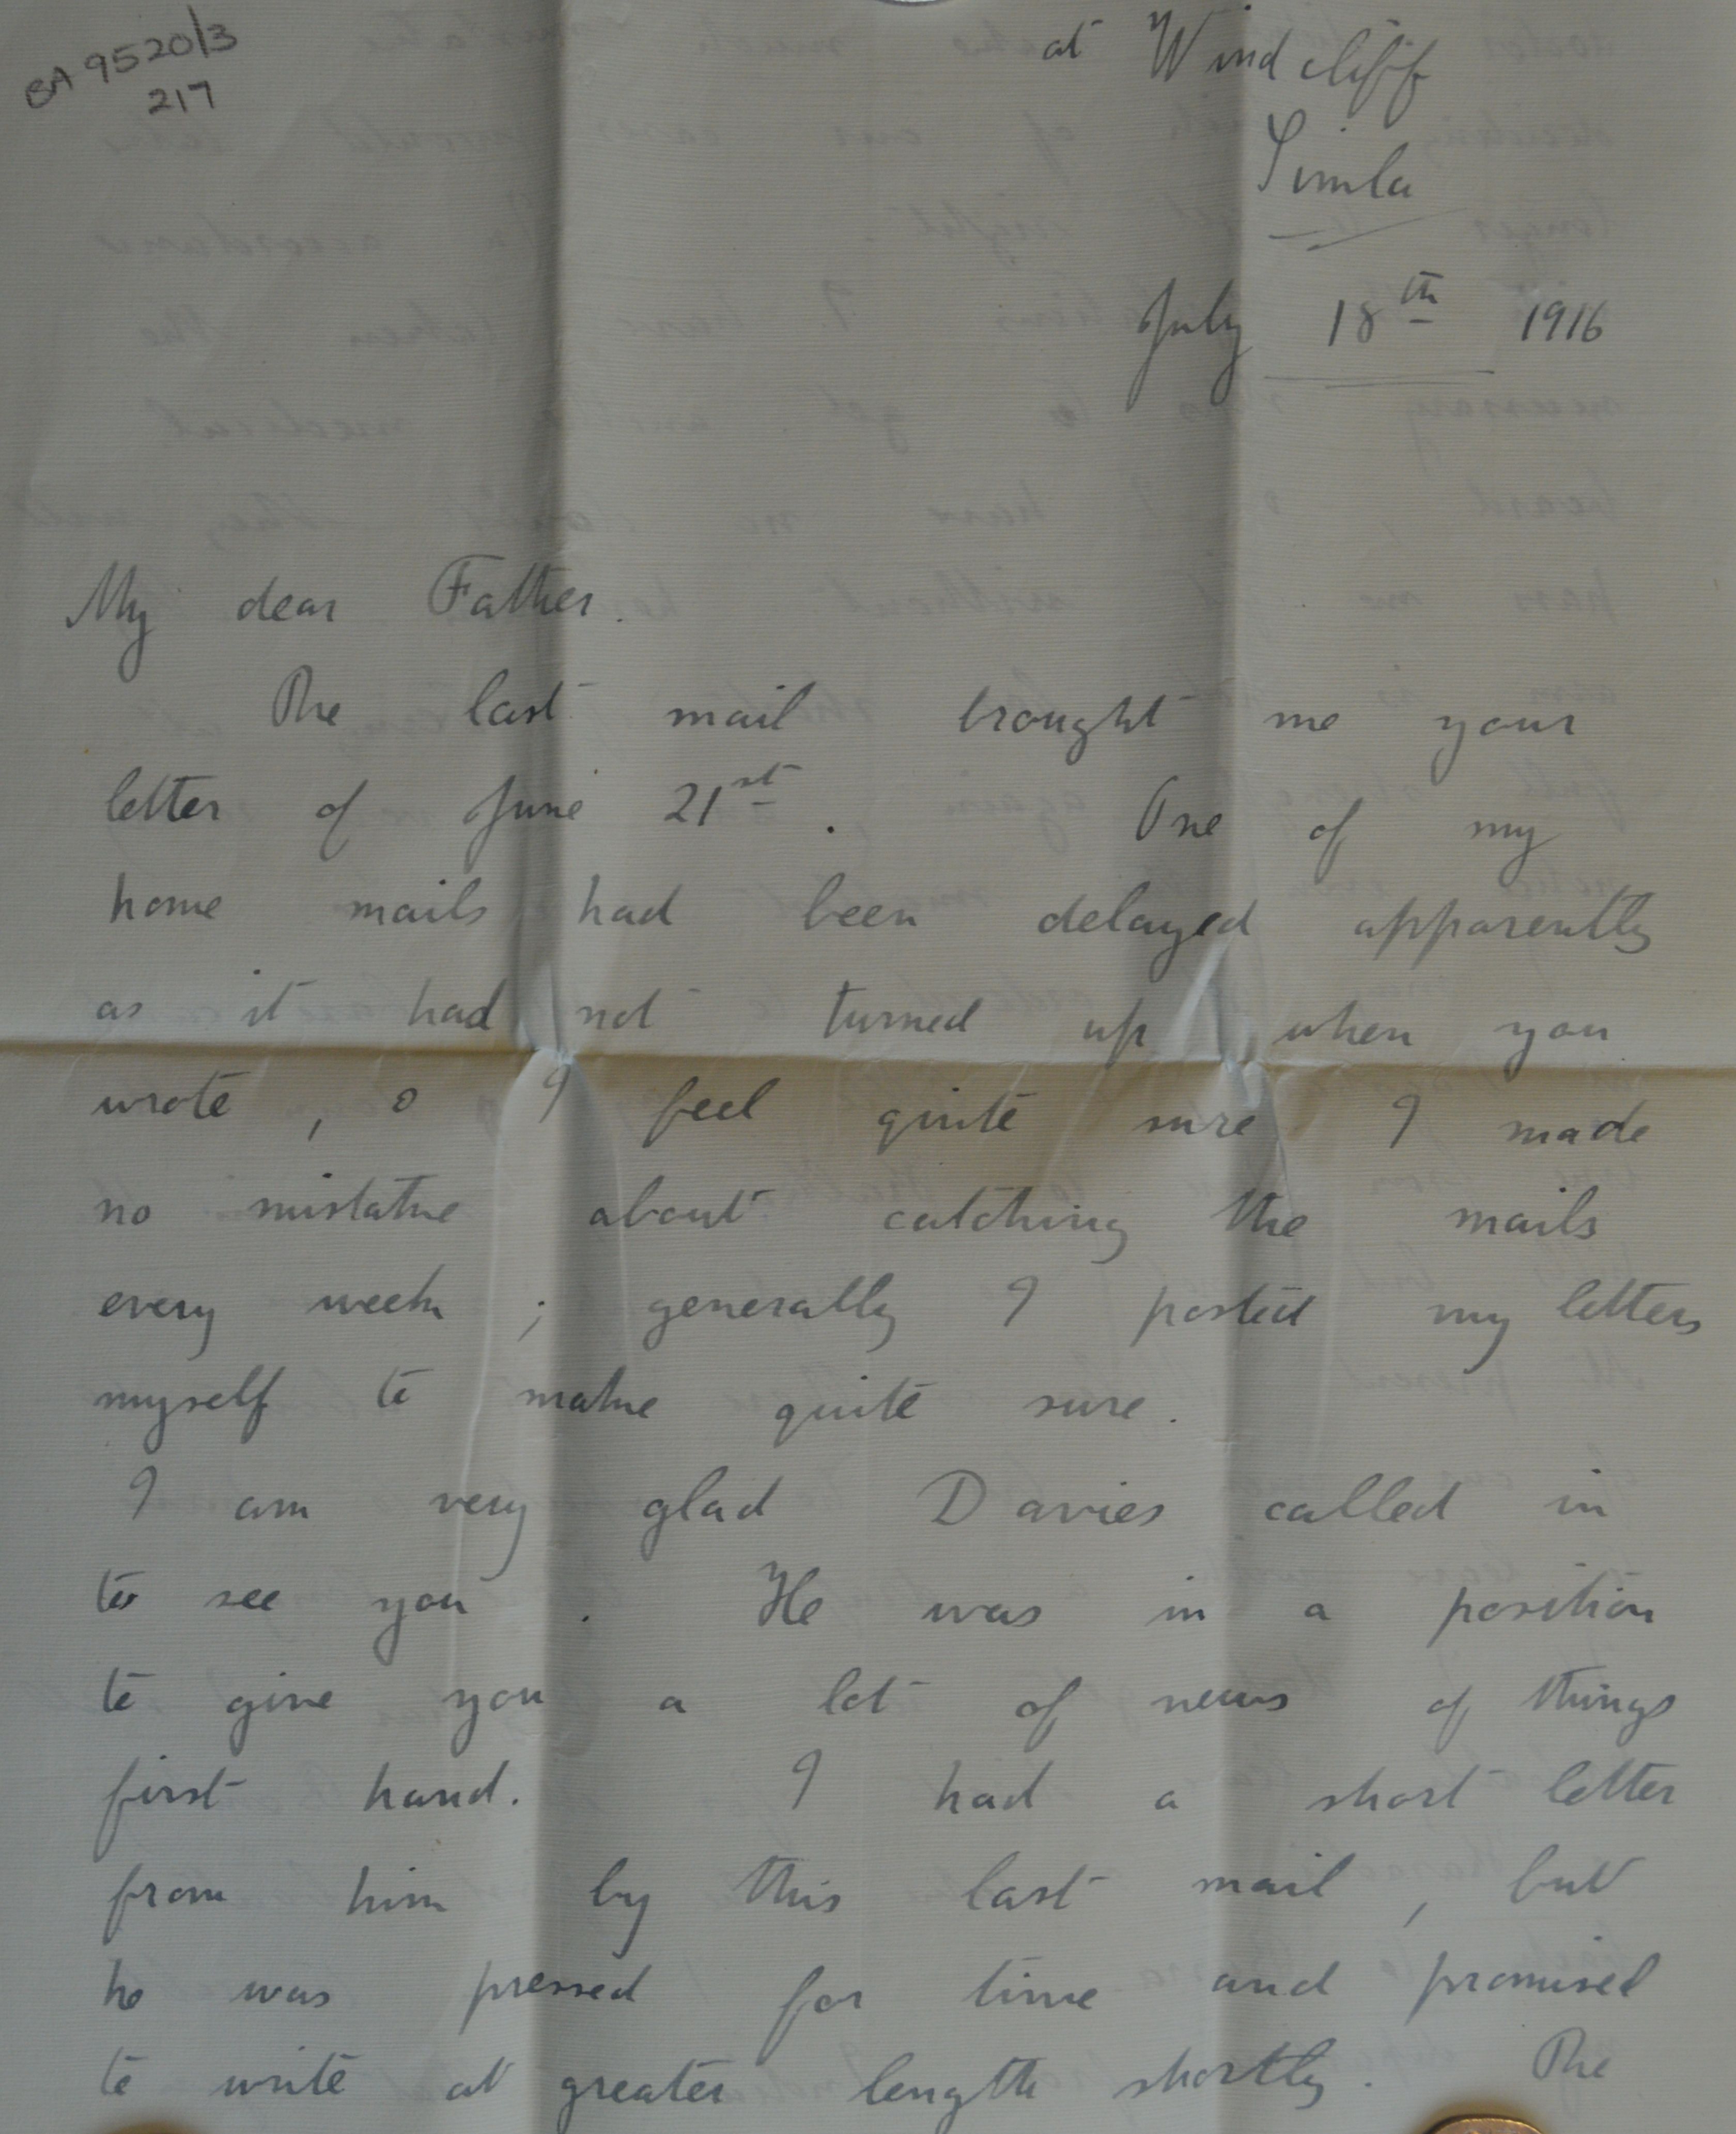 BA 9520/3
217
at Windcliff
Simla
July 18th 1916
My dear Father.
The last mail brought me your
letter of June 21st. One of my
home mails had been delayed apparently
as it had not turned up when you
wrote, I feel quite sure I made
no mistake about catching the mails
every week; generally I posted my letters
myself to make quite sure.
I am very glad Davies called in
to see you. He was in a position
to give you a lot of news of things
first hand. I had a short letter
from him by this last mail, but
he was pressed for time and promised
to write at greater length shortly. The